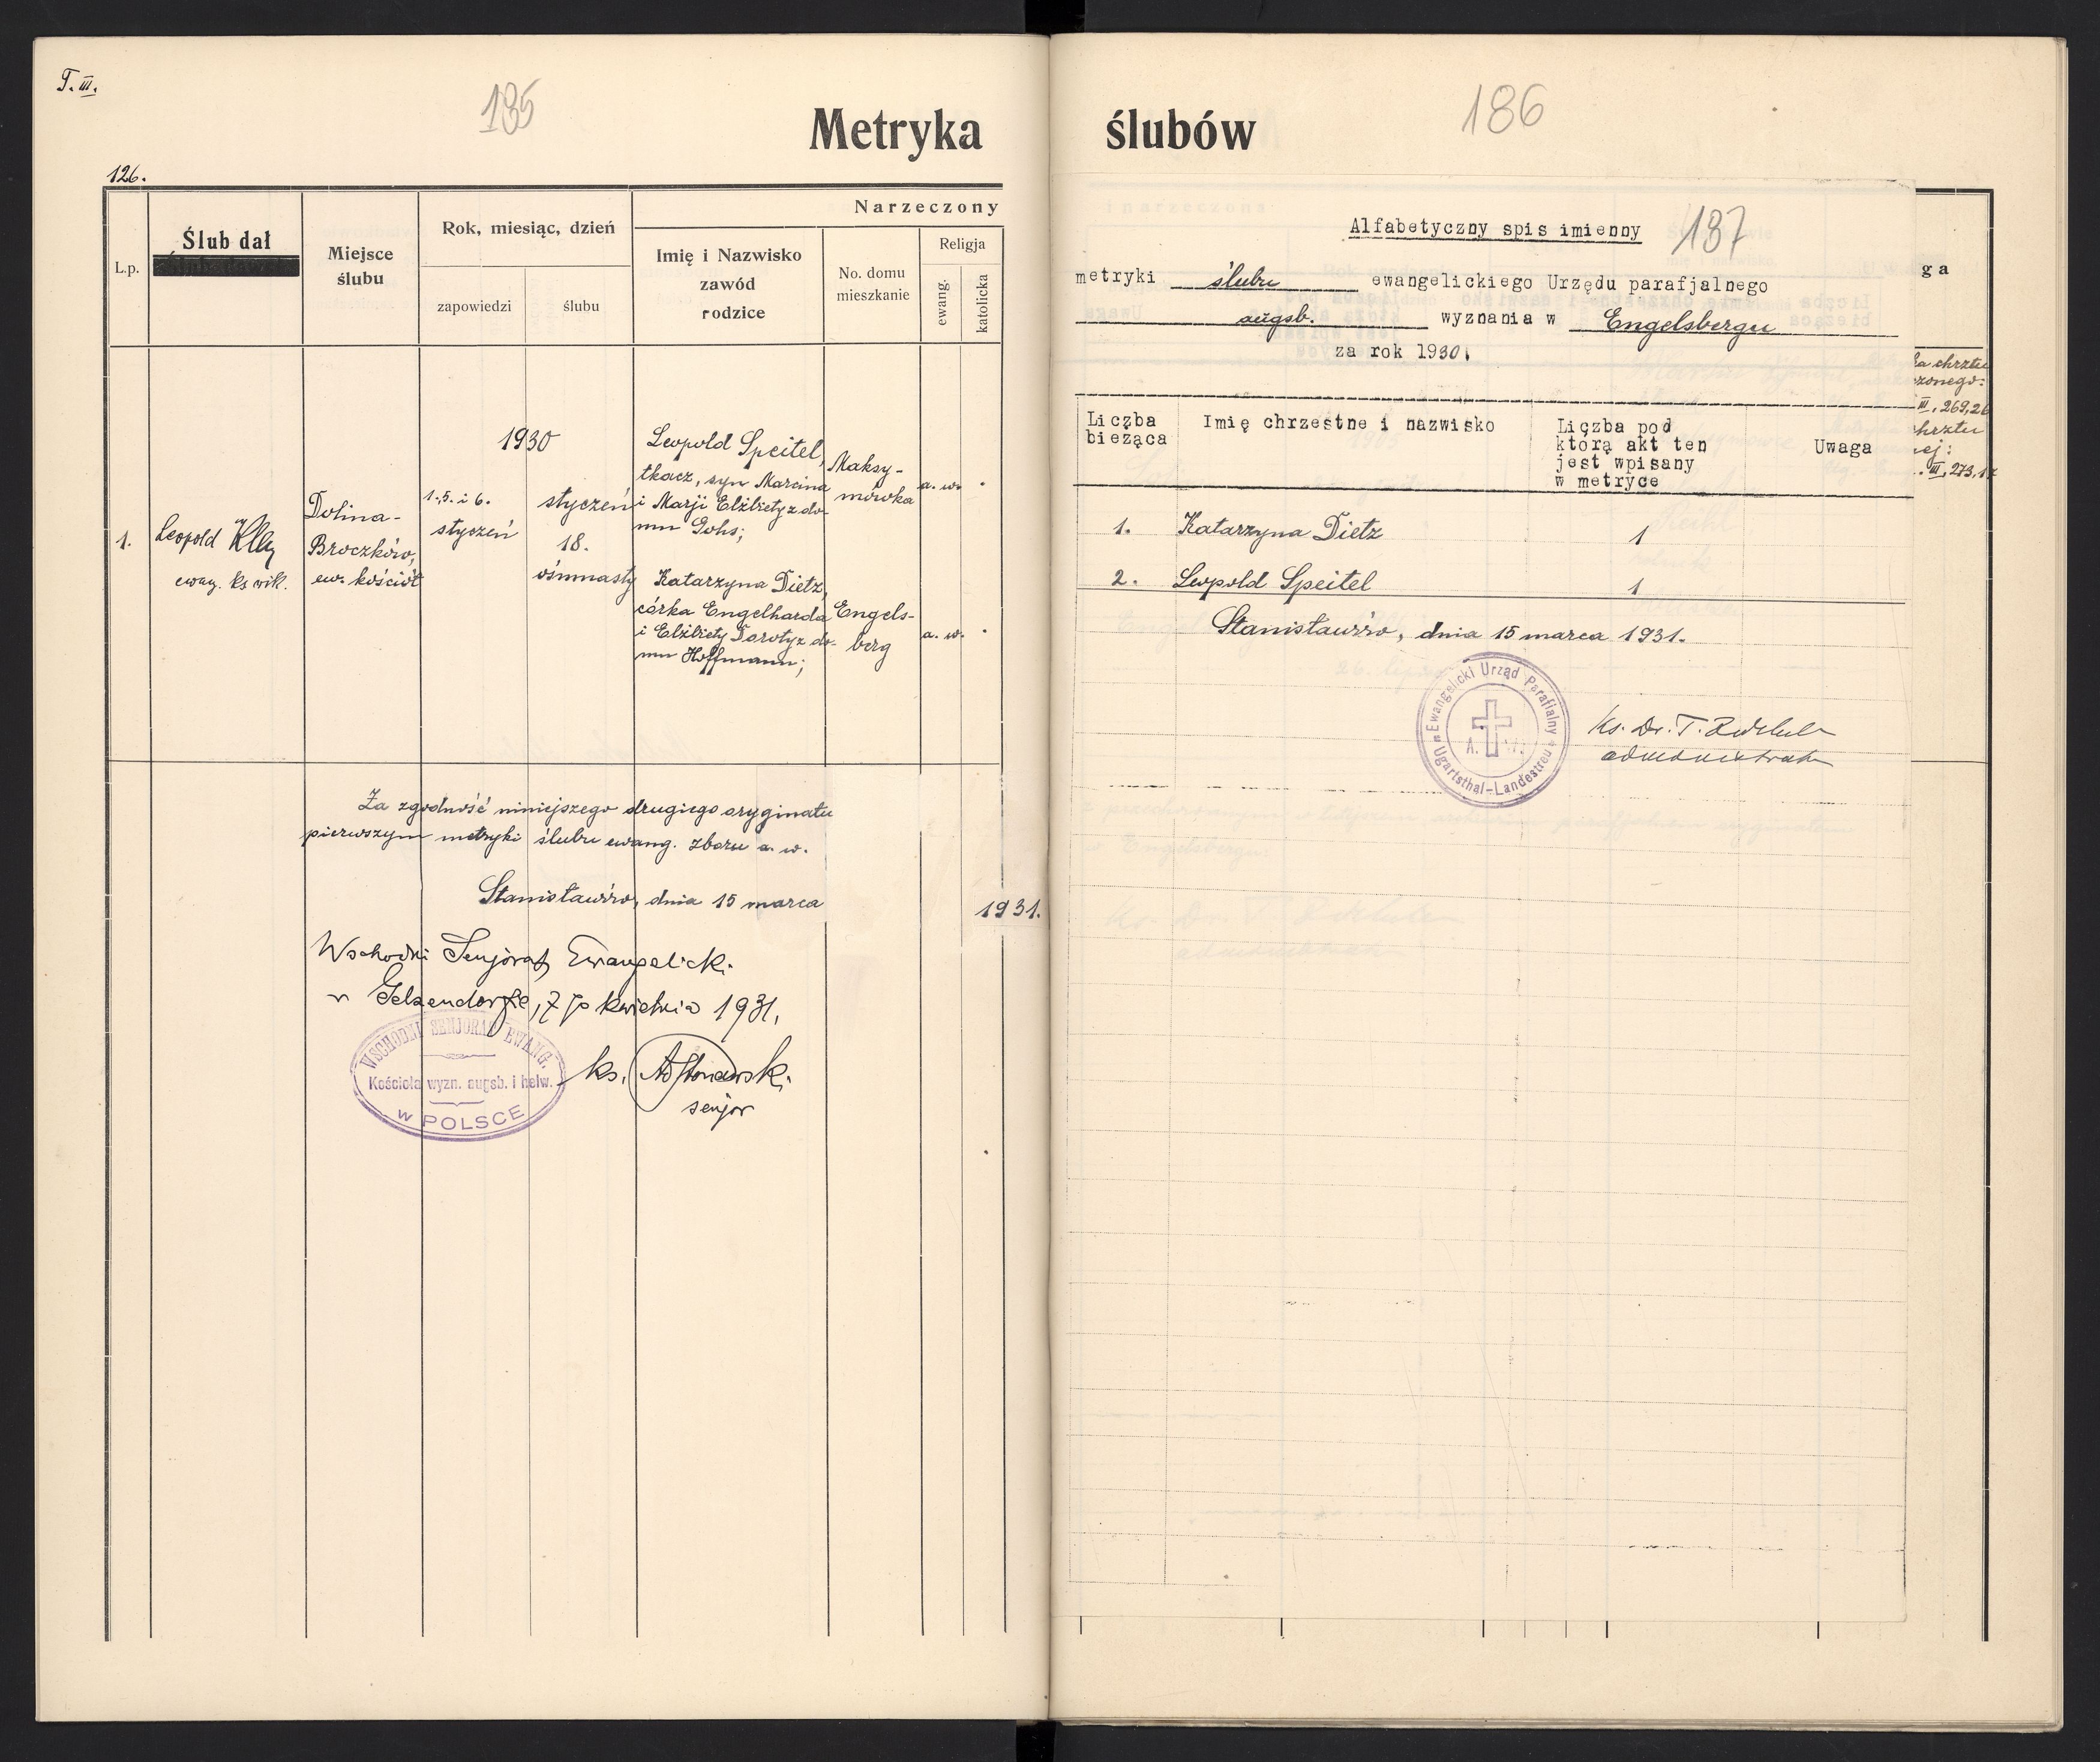 T. III.
135
Metryka
126.
L.p.
Ślub dał
Miejsce
ślubu
Rok, miesiąc, dzień
zapowiedzi
ślubu
Narzeczony
Imię i Nazwisko
zawód
rodzice
No. domu
mieszkanie
Religja
ewang.
katolicka
1930
1.
Leopold
ewang. ks wik.
Dolina-
Broczków,
ew. kościół
1., 5. i 6.
styczeń
styczeń
18.
ośmnasty
Leopold Speitel,
tkacz, syn Marcina
i Marji Elżbiety z do-
mu Gohs;
Maksy-
mówka
a. w.
Katarzyna Dietz,
córka Engelharda
i Elżbiety Doroty z do-
mu Hoffmann;
Engels-
berg
a. w.
Za zgodność niniejszego drugiego oryginału
pierwszym metryki ślubu ewang. zboru a. w.
Stanisławów, dnia 15 marca 1931.
Wschodni Senjorat Ewangelicki
w Gelsendorfie, 7 go kwietnia 1931.
WSCHODNI SENJORAT EWANG.
Kościoła wyzn. augsb. i helw.
w POLSCE
ks.
senjor
ślubów
186
Alfabetyczny spis imienny
187
metryki ślubu ewangelickiego Urzędu parafjalnego
augsb. wyznania w Engelsbergu
za rok 1930.
Liczba
bieżąca
Imię chrzestne i nazwisko
Liczba pod
którą akt ten
jest wpisany
w metryce
Uwaga
1. Katarzyna Dietz 1
2. Leopold Speitel 1
Stanisławów, dnia 15 marca 1931.
Ewangelicki Urząd Parafialny
A. W.
Ugartsthal-Landestreu
Ks. Dr. T.
administrator
ga
ka chrztu
czonego:
III, 269, 26
chrztu
ej:
. III, 273, 17